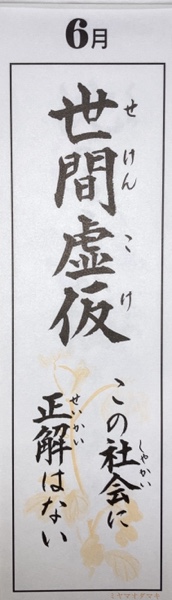 6月
世間虚仮
せけんこけ
この社会に
しゃかい
正解はない
せいかい
ミヤマオダマキ